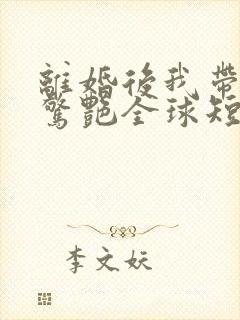 離婚後我帶
驚艷全球短
李文妖